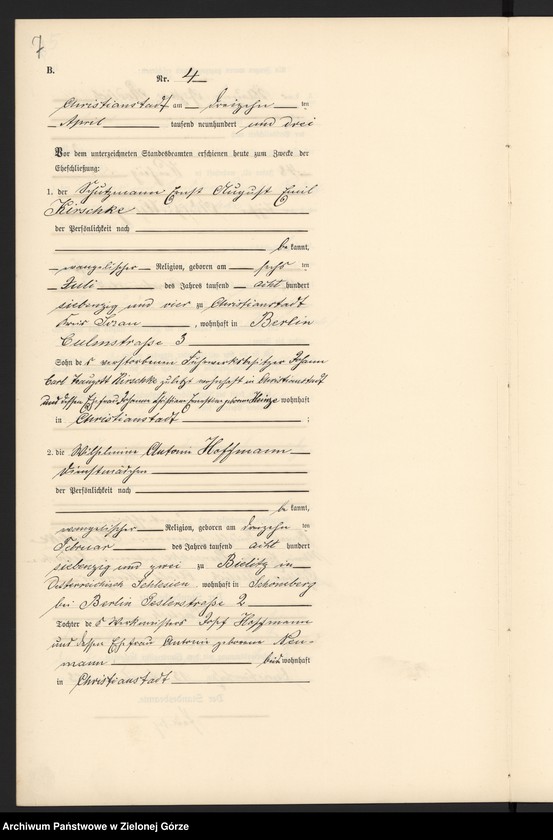 7
B.
Nr. 4
Christianstadt am dreizehn ten
April tausend neunhundert und drei
Vor dem unterzeichneten Standesbeamten erschienen heute zum Zwecke der
Eheschließung:
1. der Schutzmann Ernst August Emil
Kirschke
der Persönlichkeit nach
be kannt,
evangelischer Religion, geboren am sechs ten
Juli des Jahres tausend acht hundert
siebenzig und vier zu Christianstadt
Kreis Sorau, wohnhaft in Berlin
Culmstraße 3
Sohn des verstorbenen Fuhrwerksbesitzer Johann
Carl Traugott Kirschke zuletzt wohnhaft in Christianstadt
und dessen Ehefrau Johanne Christiane Ernestine geborene Heinze wohnhaft
in Christianstadt ;
2. die Wilhelmine Antonie Hoffmann
Dienstmädchen
der Persönlichkeit nach
be kannt,
evangelischer Religion, geboren am dreizehn ten
Februar des Jahres tausend acht hundert
siebenzig und zwei zu Bielitz in
Oesterreichisch Schlesien wohnhaft in Schöneberg
bei Berlin 2
Tochter des Werkmeisters Josef Hoffmann
und dessen Ehefrau Antonie geborene Neu-
mann beide wohnhaft
in Christianstadt
Archiwum Państwowe w Zielonej Górze